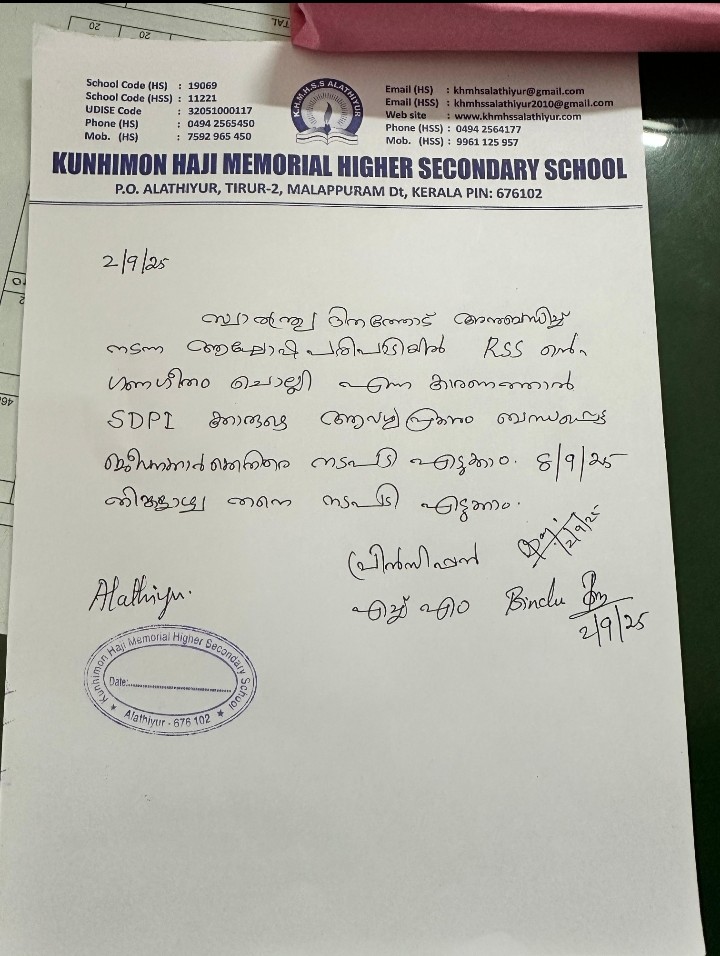 20
20
School Code (HS) : 19069
School Code (HSS) : 11221
UDISE Code : 32051000117
Phone (HS) : 0494 2565450
Mob. (HS) : 7592 965 450
K.H.M.H.S.S ALATHIYUR
Email (HS) : khmhsalathiyur@gmail.com
Email (HSS) : khmhssalathiyur2010@gmail.com
Web site : www.khmhssalathiyur.com
Phone (HSS) : 0494 2564177
Mob. (HSS) : 9961 125 957
KUNHIMON HAJI MEMORIAL HIGHER SECONDARY SCHOOL
P.O. ALATHIYUR, TIRUR-2, MALAPPURAM Dt, KERALA PIN: 676102
2/9/25
സ്വാതന്ത്ര്യ ദിനത്തോട് അനുബന്ധിച്ച്
നടന്ന ആഘോഷ പരിപാടിയിൽ RSS ൻെറ
ഗണഗീതം ചൊല്ലി എന്ന കാരണത്താൽ
SDPI ക്കാരുടെ ആവശ്യപ്രകാരം ബന്ധപ്പെട്ട
ജീവനക്കാർക്കെതിരെ നടപടി എടുക്കാം. 8/9/25
തിങ്കളാഴ്ച തന്നെ നടപടി എടുക്കാം.
പ്രിൻസിപ്പൽ 2/9/25
Alathiyur.
എച്ച് എം Bindu
2/9/25
Kunhimon Haji Memorial Higher Secondary School
Date:
Alathiyur - 676 102